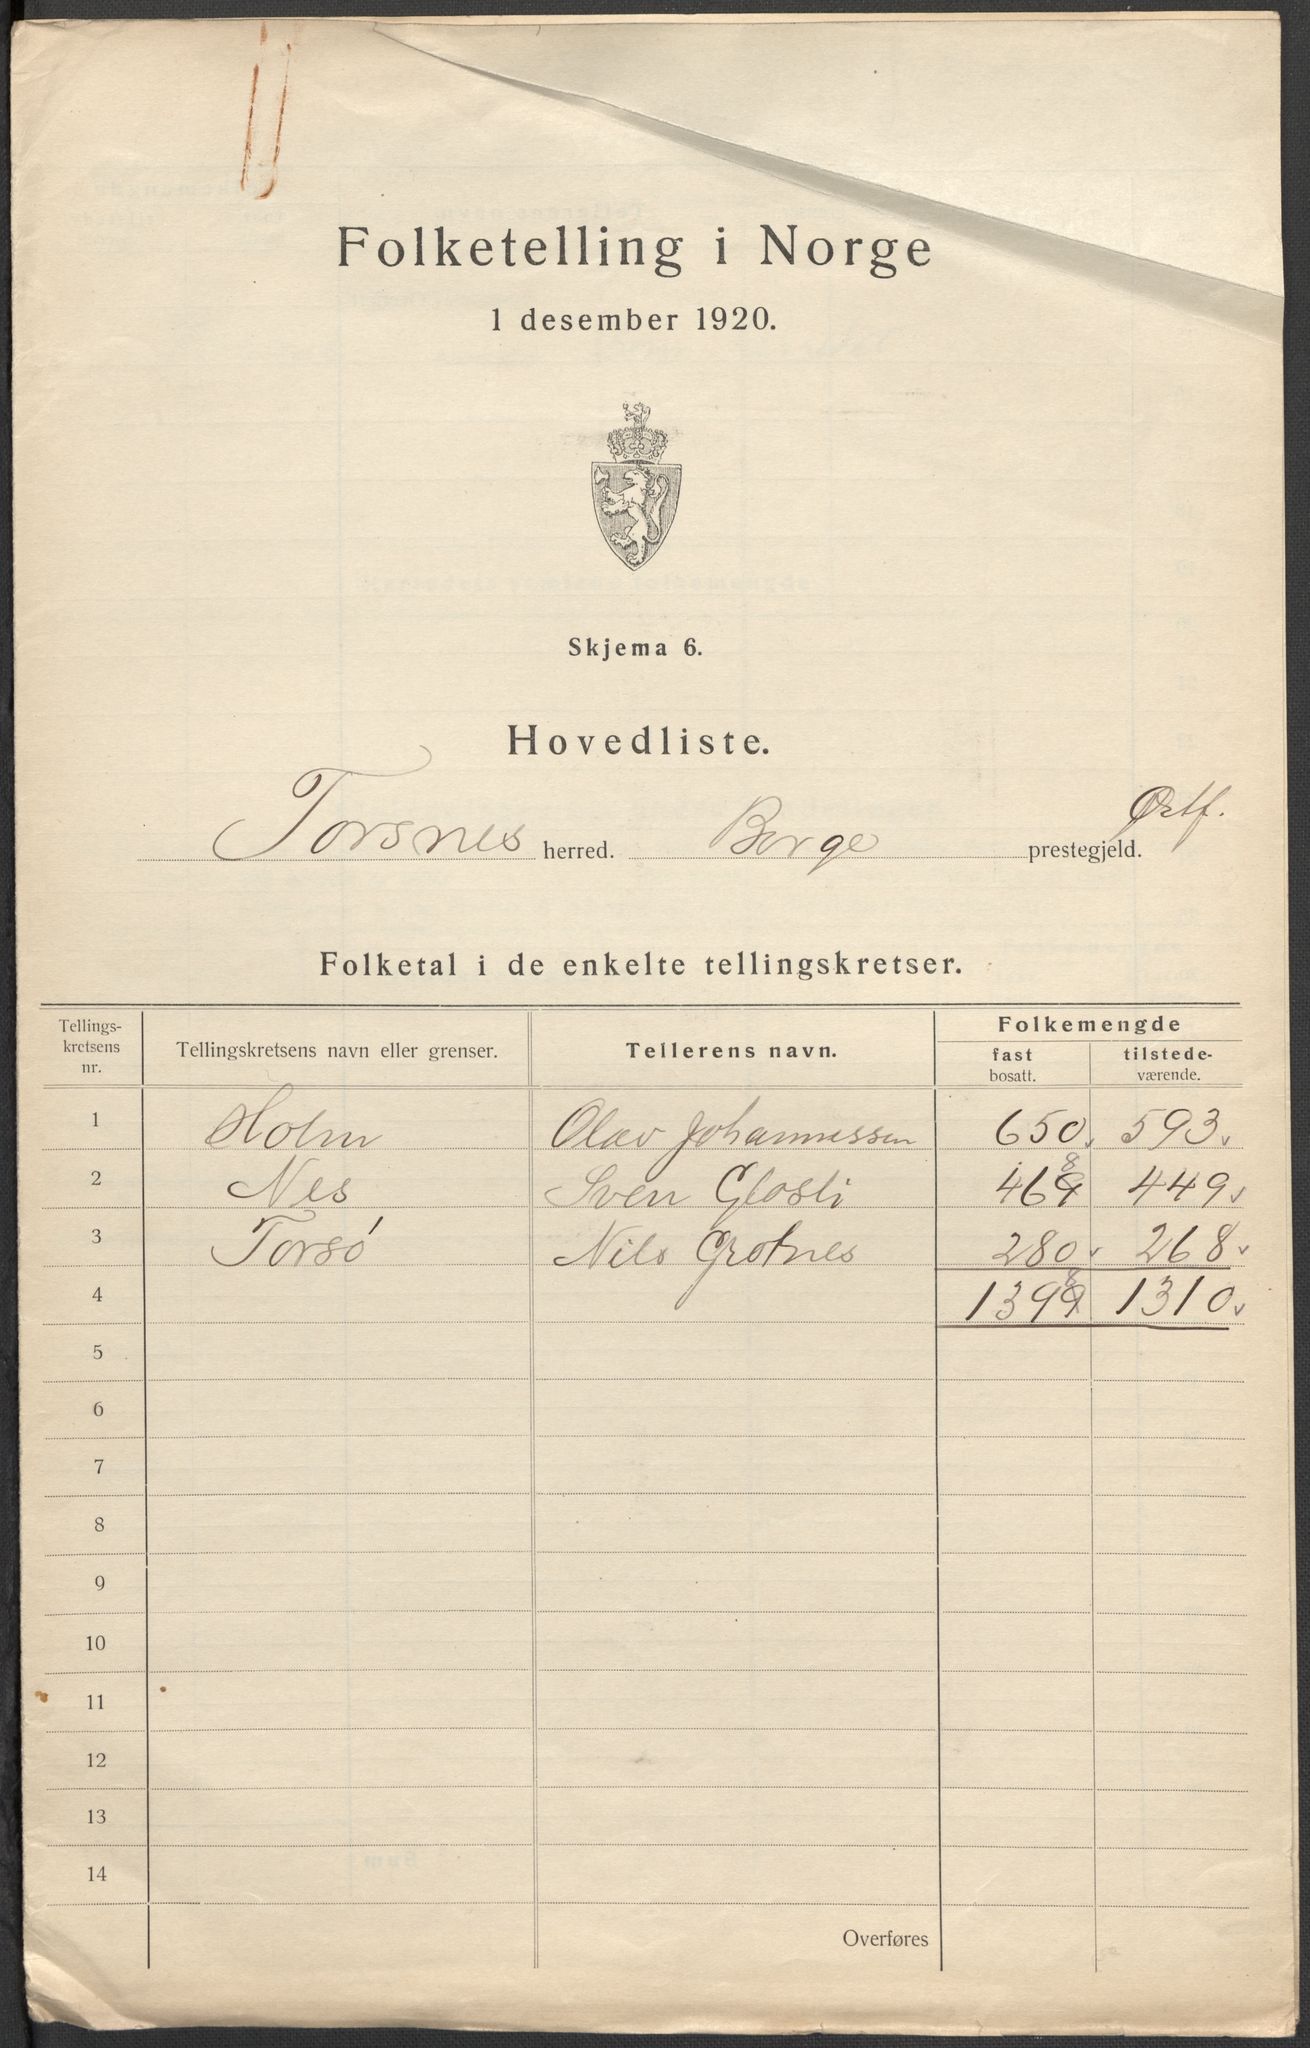 Folketelling i Norge
1 desember 1920.
Skjema 6.
Hovedliste.
Torsnes herred. Borge prestegjeld. Østf.
Folketal i de enkelte tellingskretser.
Tellings-
kretsens
nr.
Tellingskretsens navn eller grenser.
Tellerens navn.
Folkemengde
fast
bosatt.
tilstede-
værende.
1 Holm Olav Johannessen 650 593
2 Nes Sven Glosli 4698 449
3 Torsø Nils Grotnes 280 268
4 13998 1310
5
6
7
8
9
10
11
12
13
14
Overføres